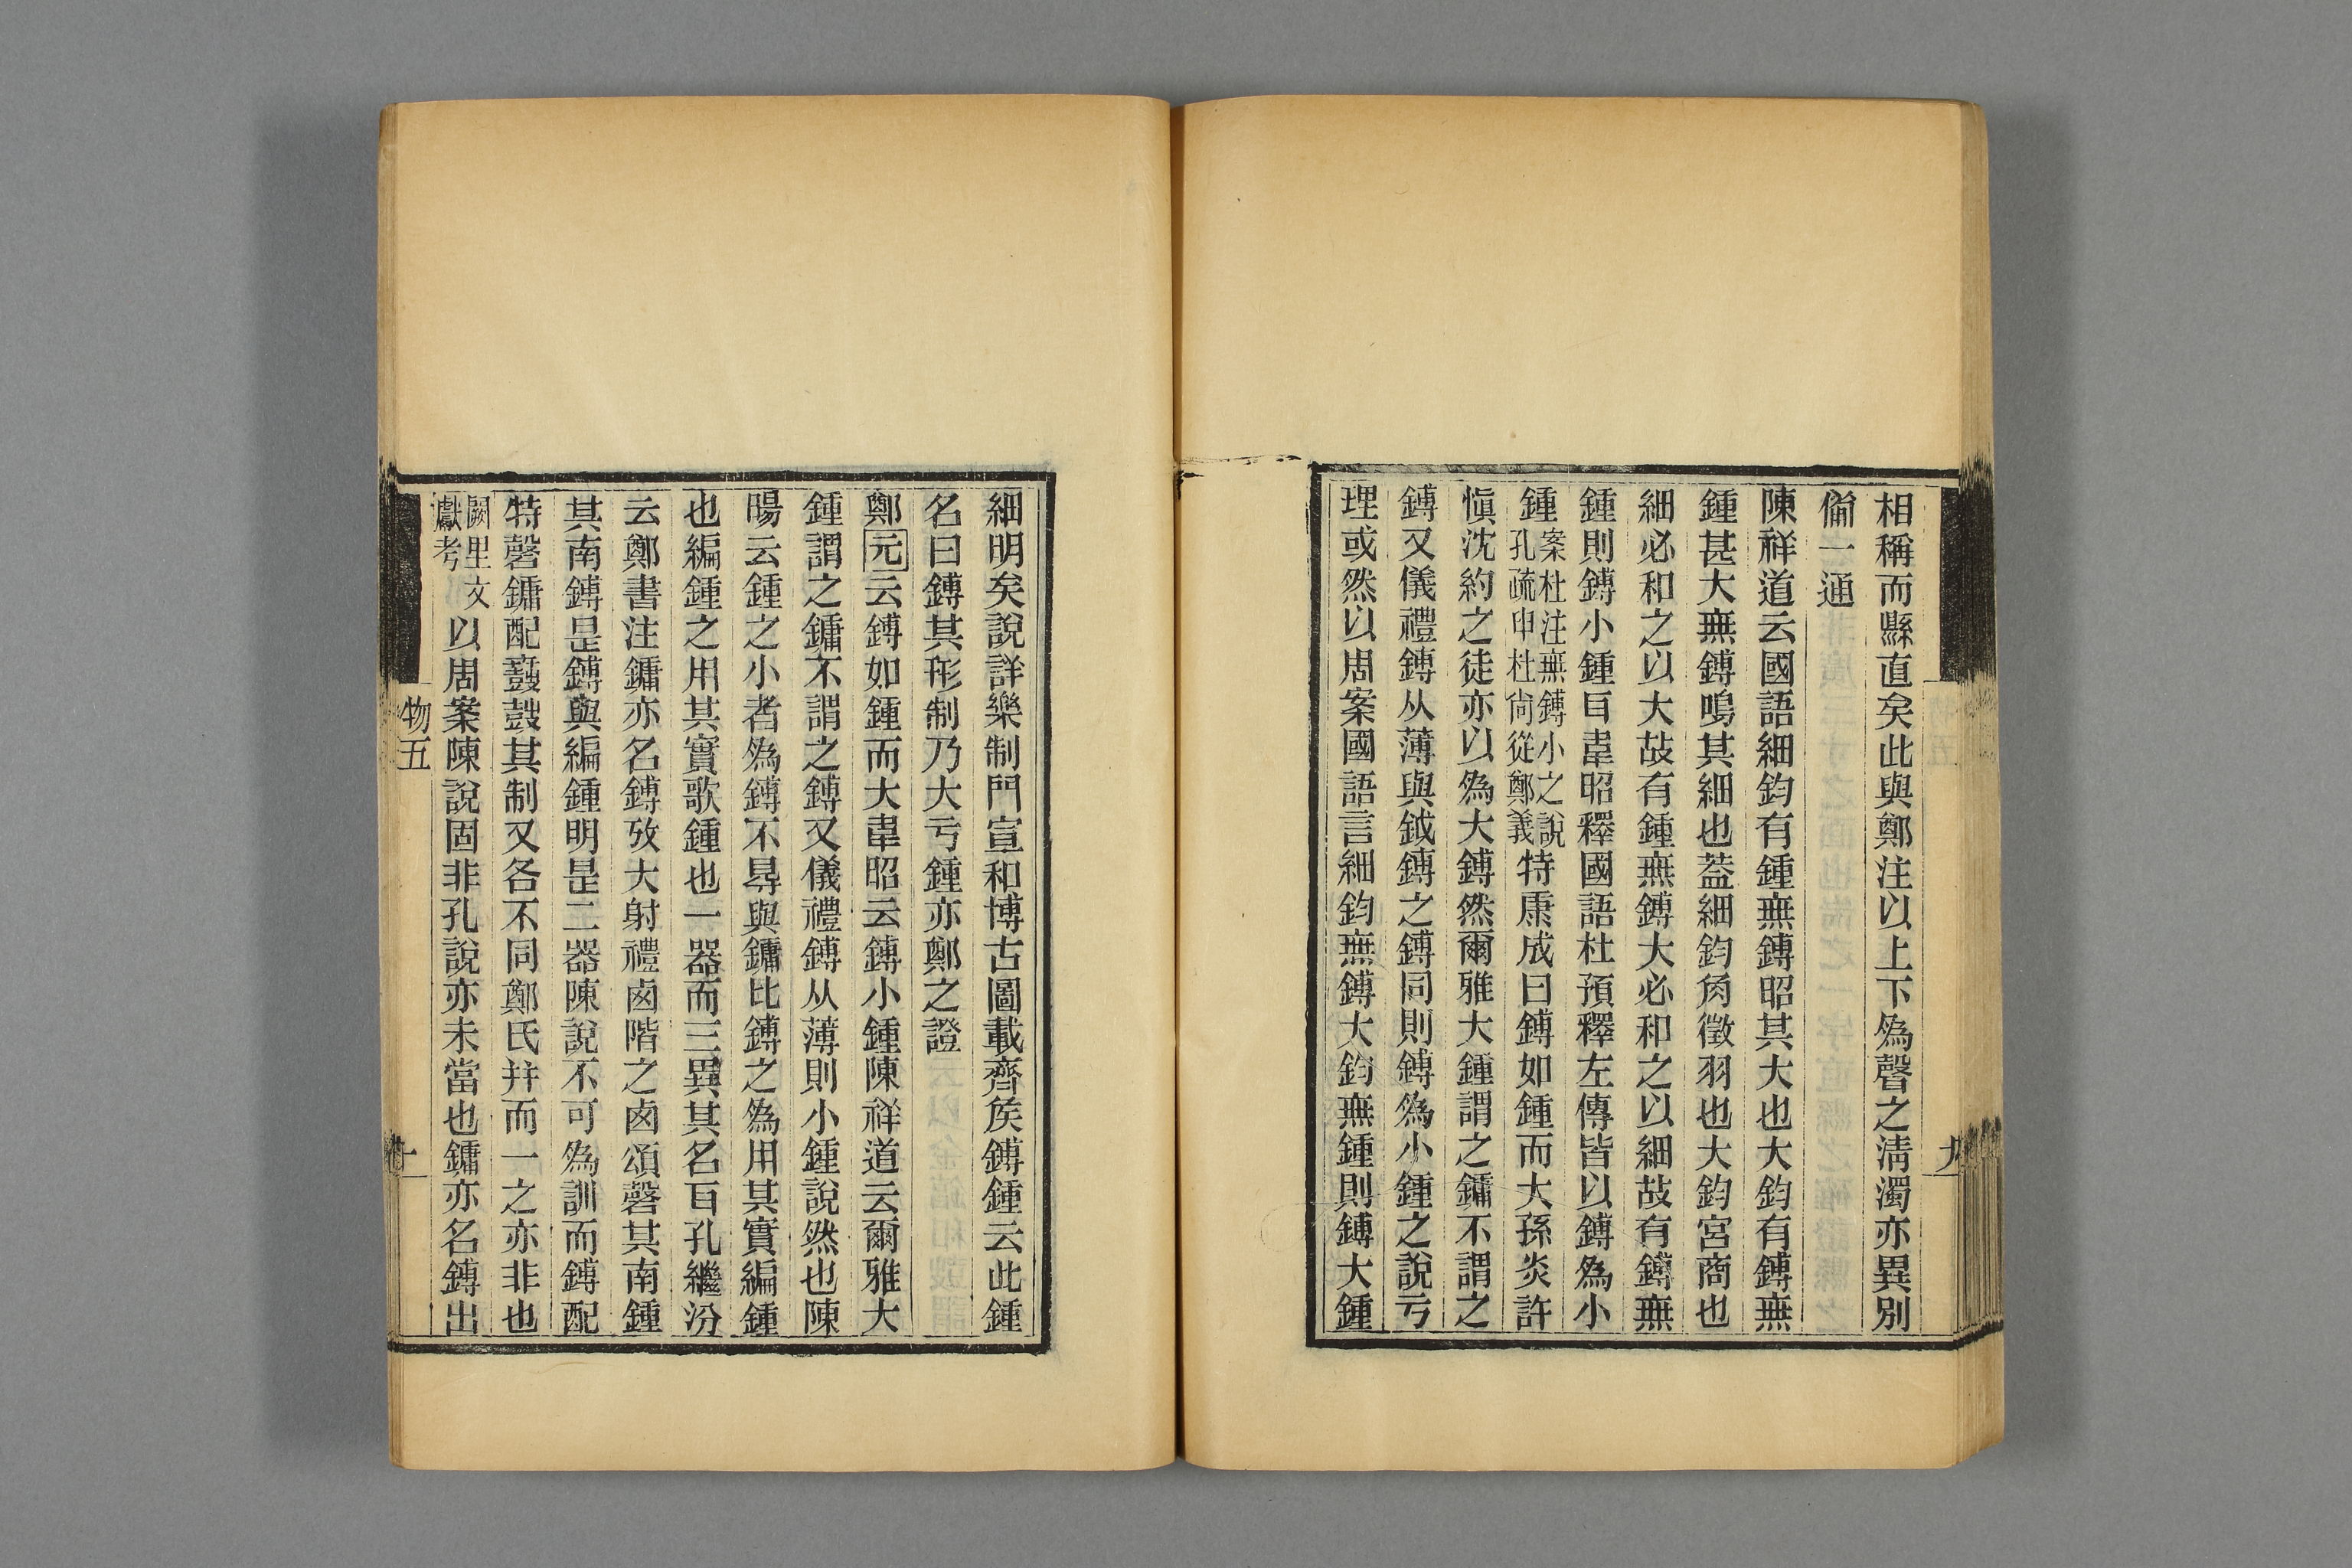 相稱而縣直矣此與鄭注以上下爲聲之淸濁亦異別
偹一通
陳祥道云國語細鈞有鍾無鎛昭其大也大鈞有鎛無
鍾甚大無鎛鳴其細也葢細鈞角徵羽也大鈞宮商也
細必和之以大故有鍾無鎛大必和之以細故有鎛無
鍾則鎛小鍾𦣻韋昭釋國語杜預釋左傳皆以鎛爲小
鍾案杜注無鎛小之說孔疏申杜尙從鄭義特康成曰鎛如鍾而大孫炎許
愼沈約之徒亦以爲大鎛然爾雅大鍾謂之鏞不謂之
鎛又儀禮鎛从薄與鉞鎛之鎛同則鎛爲小鍾之說亏
理或然以周案國語言細鈞無鎛大鈞無鍾則鎛大鍾
九
細明矣說詳樂制門宣和博古圖載齊矦鎛鍾云此鍾
名曰鎛其形制乃大亏鍾亦鄭之證
鄭元云鎛如鍾而大韋昭云鎛小鍾陳祥道云爾雅大
鍾謂之鏞不謂之鎛又儀禮鎛从薄則小鍾說然也陳
暘云鍾之小者爲鎛不㝵與鏞比鎛之爲用其實編鍾
也編鍾之用其實歌鍾也一器而三異其名𦣻孔繼汾
云鄭書注鏞亦名鎛攷大射禮卤階之卤頌磬其南鍾
其南鎛是鎛與編鍾明是二器陳說不可爲訓而鎛配
特磬鏞配鼖鼓其制又各不同鄭氏幷而一之亦非也
闕里文獻考以周案陳說固非孔說亦未當也鏞亦名鎛出
物五
十